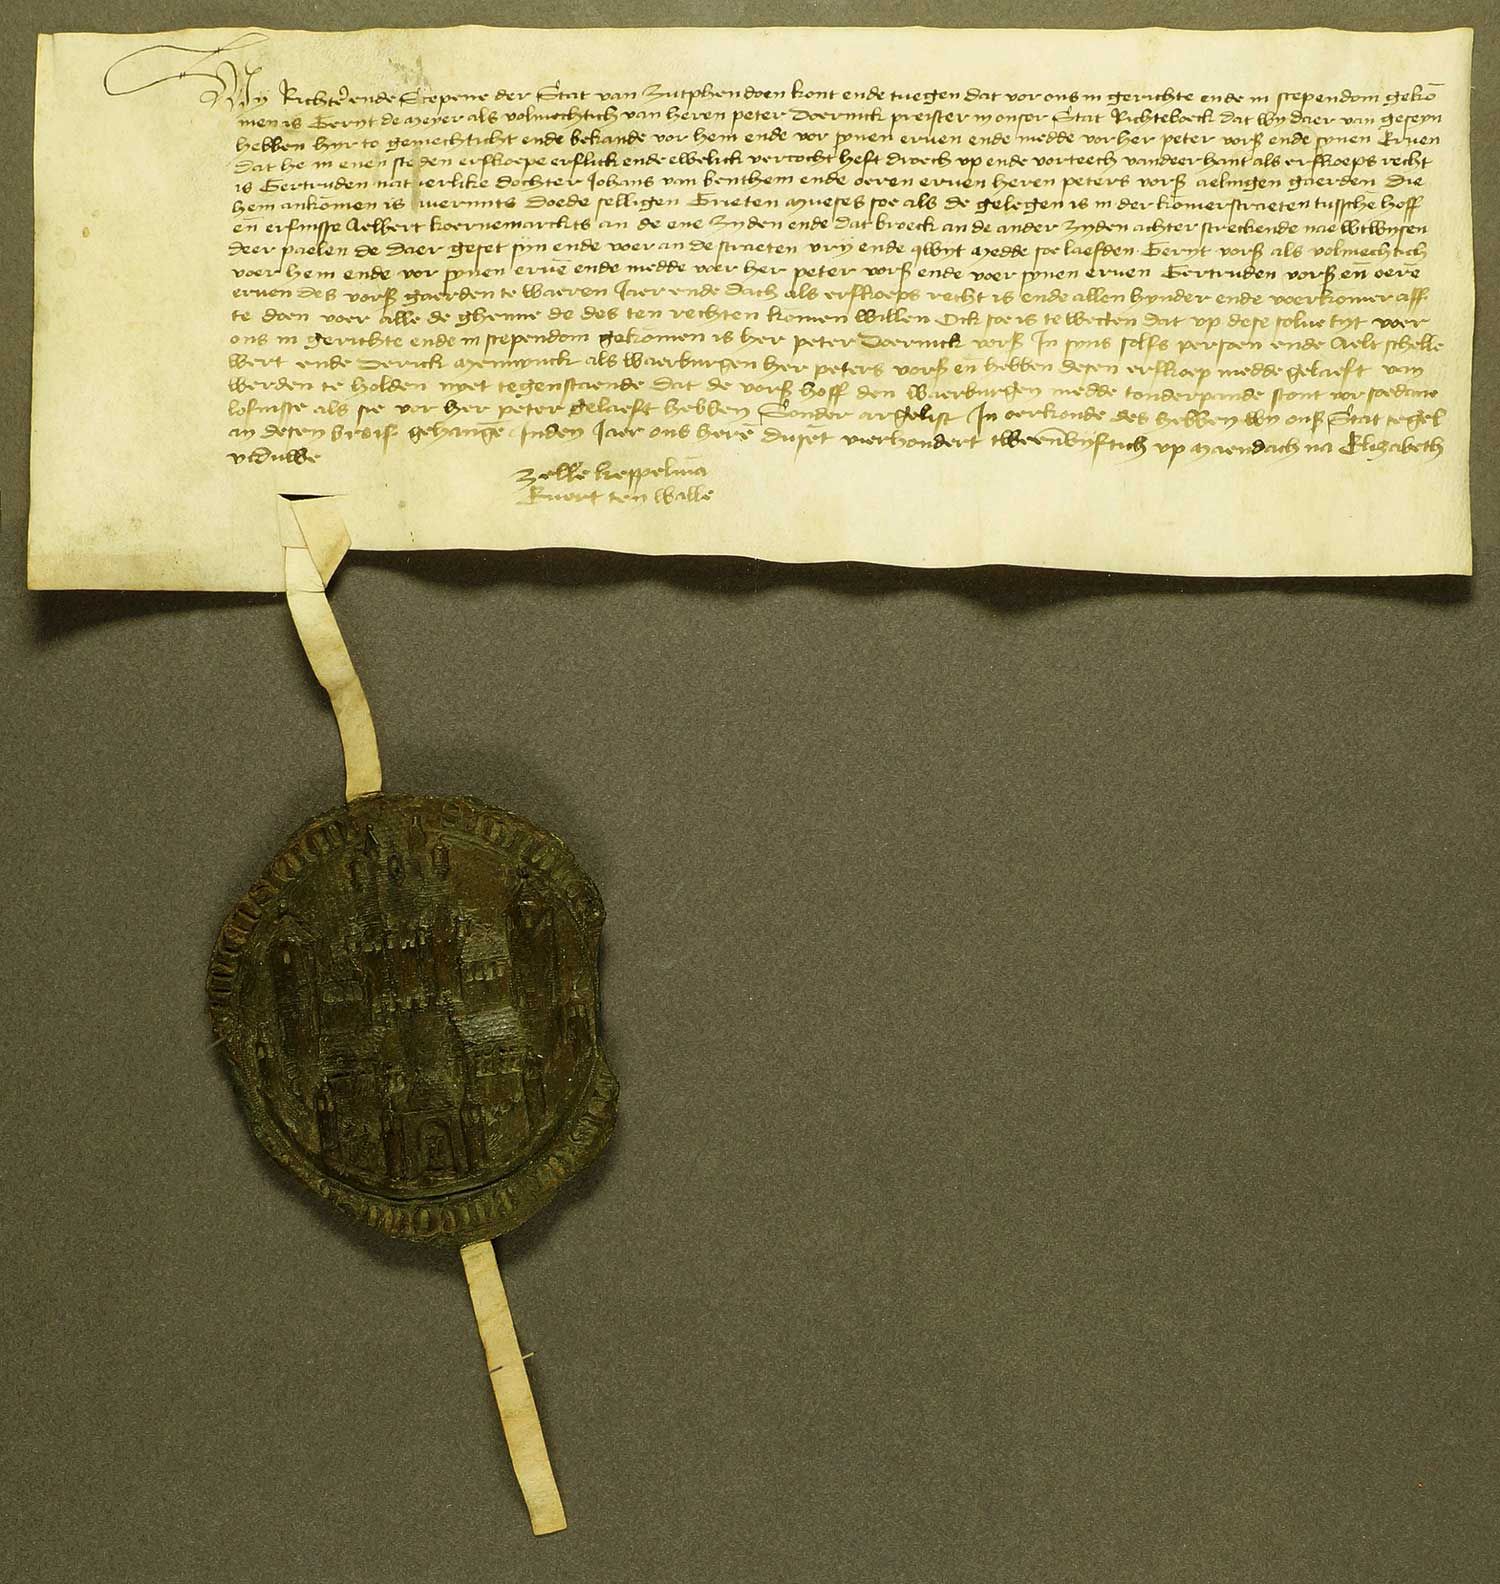 Wy Richter ende Scepene der Stat van Zutphen doen kont ende tuegen dat vor ons in gerichte ende in scependom gekō
men is Gerijt de meyer als volmechtich van heren peter Doernick preister in onser Stat Richteboeck dat wy daer van geseyn
hebben hyr to gemechticht ende bekande vor hem ende vor synen eruen ende medde vor her peter vorß ende synen Eruen
dat he in enen steden erfkoepe erflick ende ewelick vercocht heft droech vp ende vorteech vandeer hant als erfkoeps recht
is Gertruden natuerlike dochter Johans van benthem ende oeren eruen heren peters vorß aelingen gaerden die
hem ankomen is doede selligen Grieten mueses soe als de gelegen is in der komerstraeten tussche hoff
eñ erfnisse Aelbert koernemarckts an de ene zyden ende dat broeck an de ander zyden achter streckende nae wtwysen
deer paelen de daer geset syn ende voer an de straeten vry ende qwyt medde soe laefden Gerijt vorß als volmechtich
voer hem ende vor synen eruē ende medde voer her peter vorß ende voer synen eruen Gertruden vorß eñ oerē
eruen des vorß gaerden te waeren Jaer ende dach als erfkoeps recht is ende allen hynder ende voerkomer aff
te doen voer alle de ghenne de des ten rechten komen willen Ock soe is te wetten dat vp dese selue tyt voer
ons in gerichte ende in scependom gekomen is her peter Doernick vorß In syns selfs persoen ende Aelt schelle
wert ende Derick als waerburgen her peters vorß eñ hebben desen erfkoep medde gelaeft van
werden te holden nyet tegenstaende dat de vorß hoff den waerburgen medde tonderpande stont vor soedane
lofnisse als sie vor her peter gelaeft hebben Sonder argelist In oerkonde des hebben wy onß Stat segel
an desen breif gehangē Inden Jaer ons herē dusēt vierhondert tweenvyftich vp maendach na Elizabeth
viduwe
Zelle keppelmā
Euert ten walle